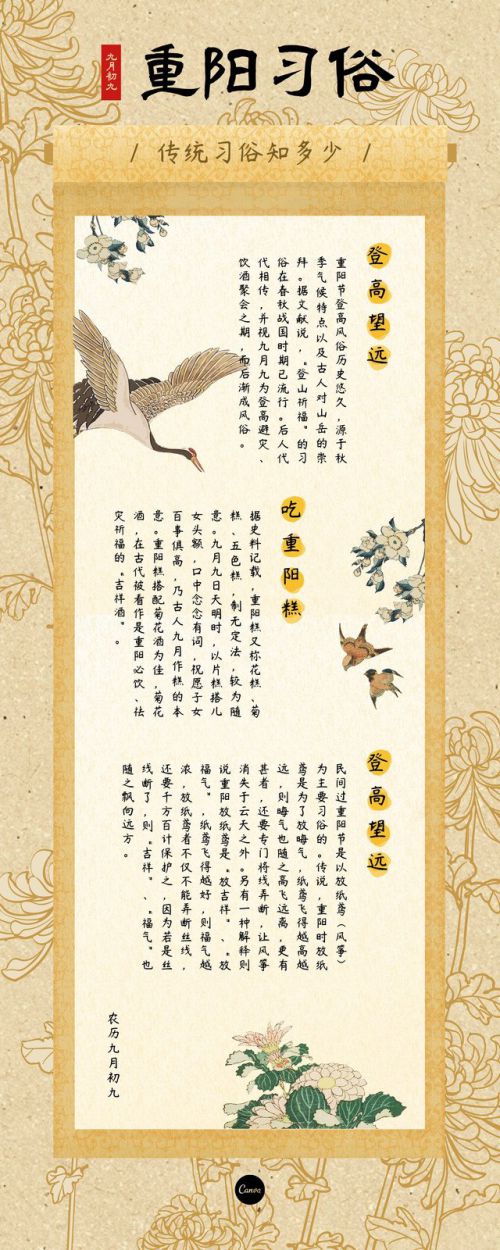 九月初九
重阳习俗
/ 传统习俗知多少 /
登高望远
重阳节登高风俗历史悠久，源于秋
季气候特点以及古人对山岳的崇
拜。据文献说，“登山祈福”的习
俗在春秋战国时期已流行。后人代
代相传，并视九月九为登高避灾、
饮酒聚会之期，而后渐成风俗。
吃重阳糕
据史料记载，重阳糕又称花糕、菊
糕、五色糕，制无定法，较为随
意。九月九日天明时，以片糕搭儿
女头额，口中念念有词，祝愿子女
百事俱高，乃古人九月作糕的本
意。重阳糕搭配菊花酒为佳，菊花
酒，在古代被看作是重阳必饮、祛
灾祈福的“吉祥酒”。
登高望远
民间过重阳节是以放纸鸢（风筝）
为主要习俗的。传说，重阳时放纸
鸢是为了放晦气，纸鸢飞得越高越
远，则晦气也随之高飞远离，更有
甚者，还要专门将线弄断，让风筝
消失于云天之外。另有一种解释则
说重阳放纸鸢是“放吉祥”、“放
福气”，纸鸢飞得越好，则福气越
浓，放纸鸢者不仅不能弄断丝线，
还要千方百计保护之，因为若是丝
线断了，则“吉祥”、“福气”也
随之飘向远方。
农历九月初九
Canva